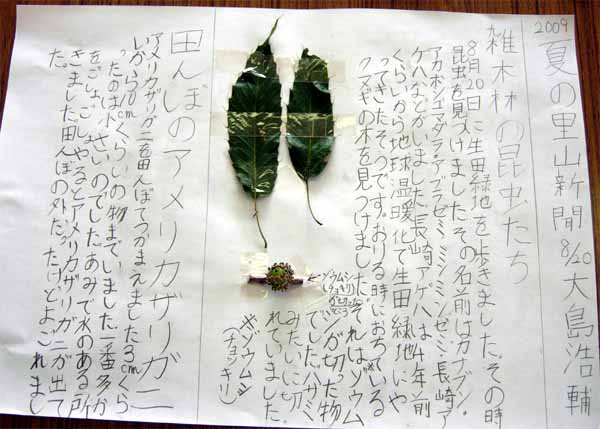 2009
夏の里山新聞 8/20 大島浩輔
雑木林の昆虫たち
8月20日に生田緑地を歩きました。その時
昆虫を見つけました。その名前はカナブン・
アカボシゴマダラ・アブラゼミ・ミンミンゼミ・長崎ア
ゲハなどがいました。長崎アゲハは4年前
くらいから地球温暖化で生田緑地にや
ってきたそうです。おりる時におちている
クヌギの木を見つけまし
た。それはゾウム
シが切った物
でした。ハサミ
みたいに切
れていました。
※ゾウムシ
(チョッキリ)
ゾウムシ
(チョッキリ)
がきった
田んぼのアメリカザリガニ
アメリカザリガニを田んぼでつかまえました。3cmくら
いから10cmくらいの物までいました。一番多か
ったのは小さいのでした。あみで水のある所
をごしごしやるとアメリカザリガニが出て
きました。田んぼの外だったけどよごれまし
た。